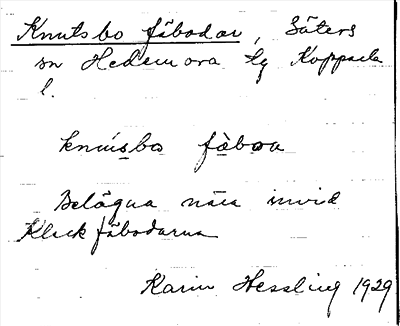 Knutsbo fäbodar, Säters
sn Hedemora tg Kopparb
l.
knusbo fäboa
Belägna nära invid
Kleckfäbodarna
Karin Hessling 1929